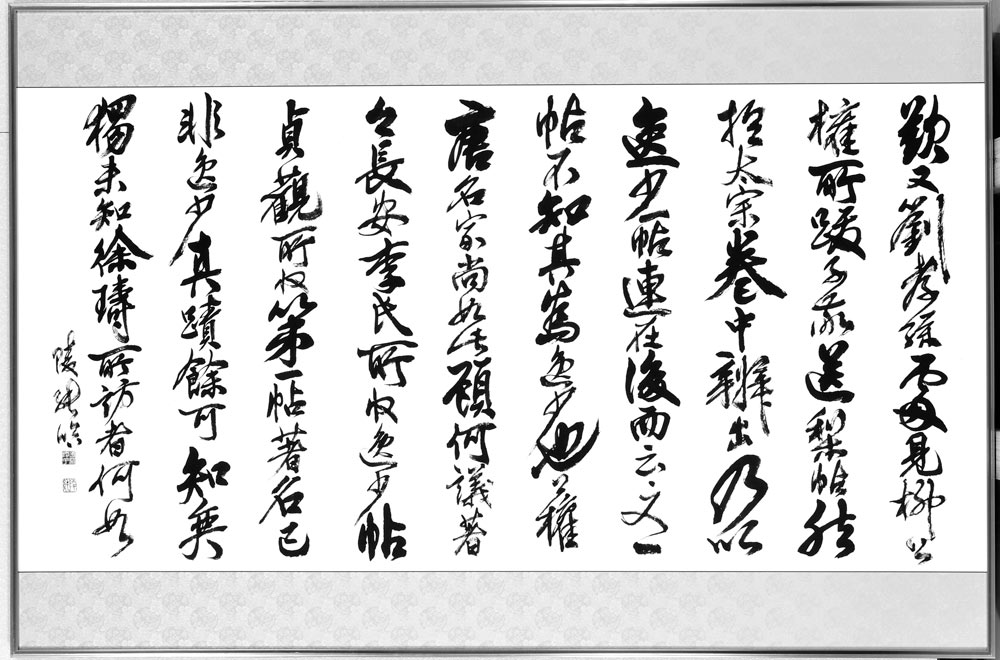 歎又劉孝孫處見柳公
權所跋子敬送梨帖然
於太宗卷中辨出乃以
逸少一帖連在後而云又一
帖不知其為逸少也公權
唐名家尚如此顧何議著
今長安李氏所收逸少帖
貞觀所收第一帖著名已
非逸少真蹟餘可知矣
獨未知徐璹所訪者何如
臨